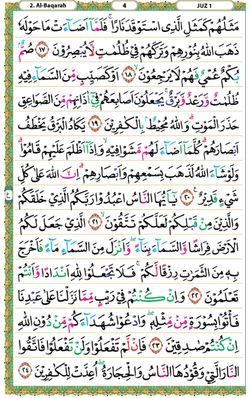 2. Al-Baqarah 4 JUZ 1
مَثَلُهُمْ كَمَثَلِ الَّذِى اسْتَوْقَدَ نَارًا ۚ فَلَمَّآ اَضَآءَتْ مَا حَوْلَهٗ
ذَهَبَ اللّٰهُ بِنُوْرِهِمْ وَتَرَكَهُمْ فِيْ ظُلُمٰتٍ لَّا يُبْصِرُوْنَ ١٧ صُمٌّۢ
بُكْمٌ عُمْيٌ فَهُمْ لَا يَرْجِعُوْنَ ١٨ اَوْ كَصَيِّبٍ مِّنَ السَّمَآءِ فِيْهِ
ظُلُمٰتٌ وَّرَعْدٌ وَّبَرْقٌ ۚ يَجْعَلُوْنَ اَصَابِعَهُمْ فِيْٓ اٰذَانِهِمْ مِّنَ الصَّوَاعِقِ
حَذَرَ الْمَوْتِ ۗ وَاللّٰهُ مُحِيْطٌۢ بِالْكٰفِرِيْنَ ١٩ يَكَادُ الْبَرْقُ يَخْطَفُ
اَبْصَارَهُمْ ۗ كُلَّمَآ اَضَآءَ لَهُمْ مَّشَوْا فِيْهِ ۙ وَاِذَآ اَظْلَمَ عَلَيْهِمْ قَامُوْا ۗ
وَلَوْ شَآءَ اللّٰهُ لَذَهَبَ بِسَمْعِهِمْ وَاَبْصَارِهِمْ ۗ اِنَّ اللّٰهَ عَلٰى كُلِّ
شَيْءٍ قَدِيْرٌ ٢٠ يٰٓاَيُّهَا النَّاسُ اعْبُدُوْا رَبَّكُمُ الَّذِيْ خَلَقَكُمْ
وَالَّذِيْنَ مِنْ قَبْلِكُمْ لَعَلَّكُمْ تَتَّقُوْنَ ٢١ الَّذِيْ جَعَلَ لَكُمُ
الْاَرْضَ فِرَاشًا وَّالسَّمَآءَ بِنَآءً ۖ وَّاَنْزَلَ مِنَ السَّمَآءِ مَآءً فَاَخْرَجَ
بِهٖ مِنَ الثَّمَرٰتِ رِزْقًا لَّكُمْ ۚ فَلَا تَجْعَلُوْا لِلّٰهِ اَنْدَادًا وَّاَنْتُمْ
تَعْلَمُوْنَ ٢٢ وَاِنْ كُنْتُمْ فِيْ رَيْبٍ مِّمَّا نَزَّلْنَا عَلٰى عَبْدِنَا
فَأْتُوْا بِسُوْرَةٍ مِّنْ مِّثْلِهٖ ۖ وَادْعُوْا شُهَدَآءَكُمْ مِّنْ دُوْنِ اللّٰهِ
اِنْ كُنْتُمْ صٰدِقِيْنَ ٢٣ فَاِنْ لَّمْ تَفْعَلُوْا وَلَنْ تَفْعَلُوْا فَاتَّقُوا
النَّارَ الَّتِيْ وَقُوْدُهَا النَّاسُ وَالْحِجَارَةُ ۖ اُعِدَّتْ لِلْكٰفِرِيْنَ ٢٤